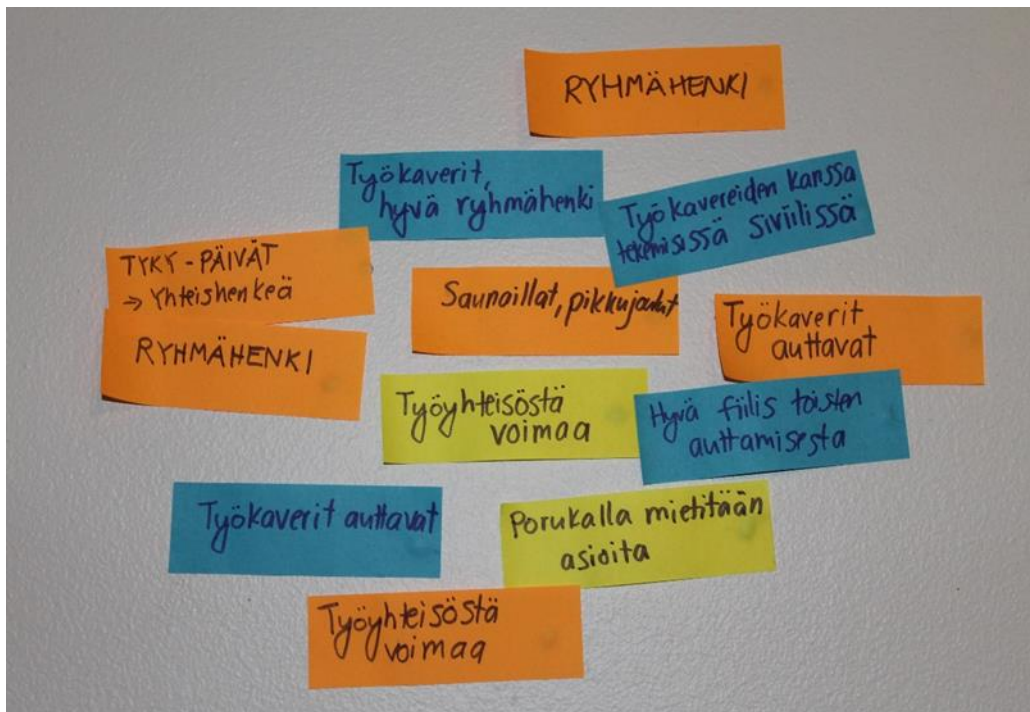 RYHMÄHENKI
Työkaverit,
hyvä ryhmähenki
Työkavereiden kanssa
tekemisissä siviilissä
TYKY-PÄIVÄT
→ Yhteishenkeä
Saunaillat, pikkujoulut
Työkaverit
auttavat
RYHMÄHENKI
Työyhteisöstä
voimaa
Hyvä fiilis toisten
auttamisesta
Työkaverit auttavat
Porukalla mietitään
asioita
Työyhteisöstä
voimaa